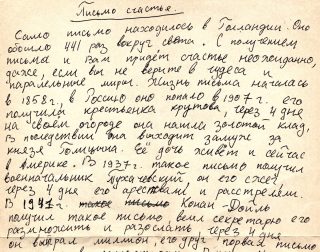 Письмо счастья.
Само письмо находилось в Голландии. Оно
обошло 441 раз вокруг света. С получением
письма к Вам придёт счастье неожиданно,
даже, если вы не верите в чудеса и
паралельные миры. Жизнь письма началась
в 1858г., в Россию оно попало в 1907г. его
получила крестьянка Крутова, через 4 дня
на своём огороде она нашла золотой клад.
В последствии она выходит замуж за
князя Голицина. Её дочь живёт и сейчас
в Америке. В 1937г. такое письмо получил
военачальник Тухачевский он его сжёг
через 4 дня его арестовали и расстрелял.
В 1941г. такое письмо Конан-Дойль
получил такое письмо, велил секретарю его
размножить и разослать через 4 дня
он выиграл миллион, его друг порвал письмо